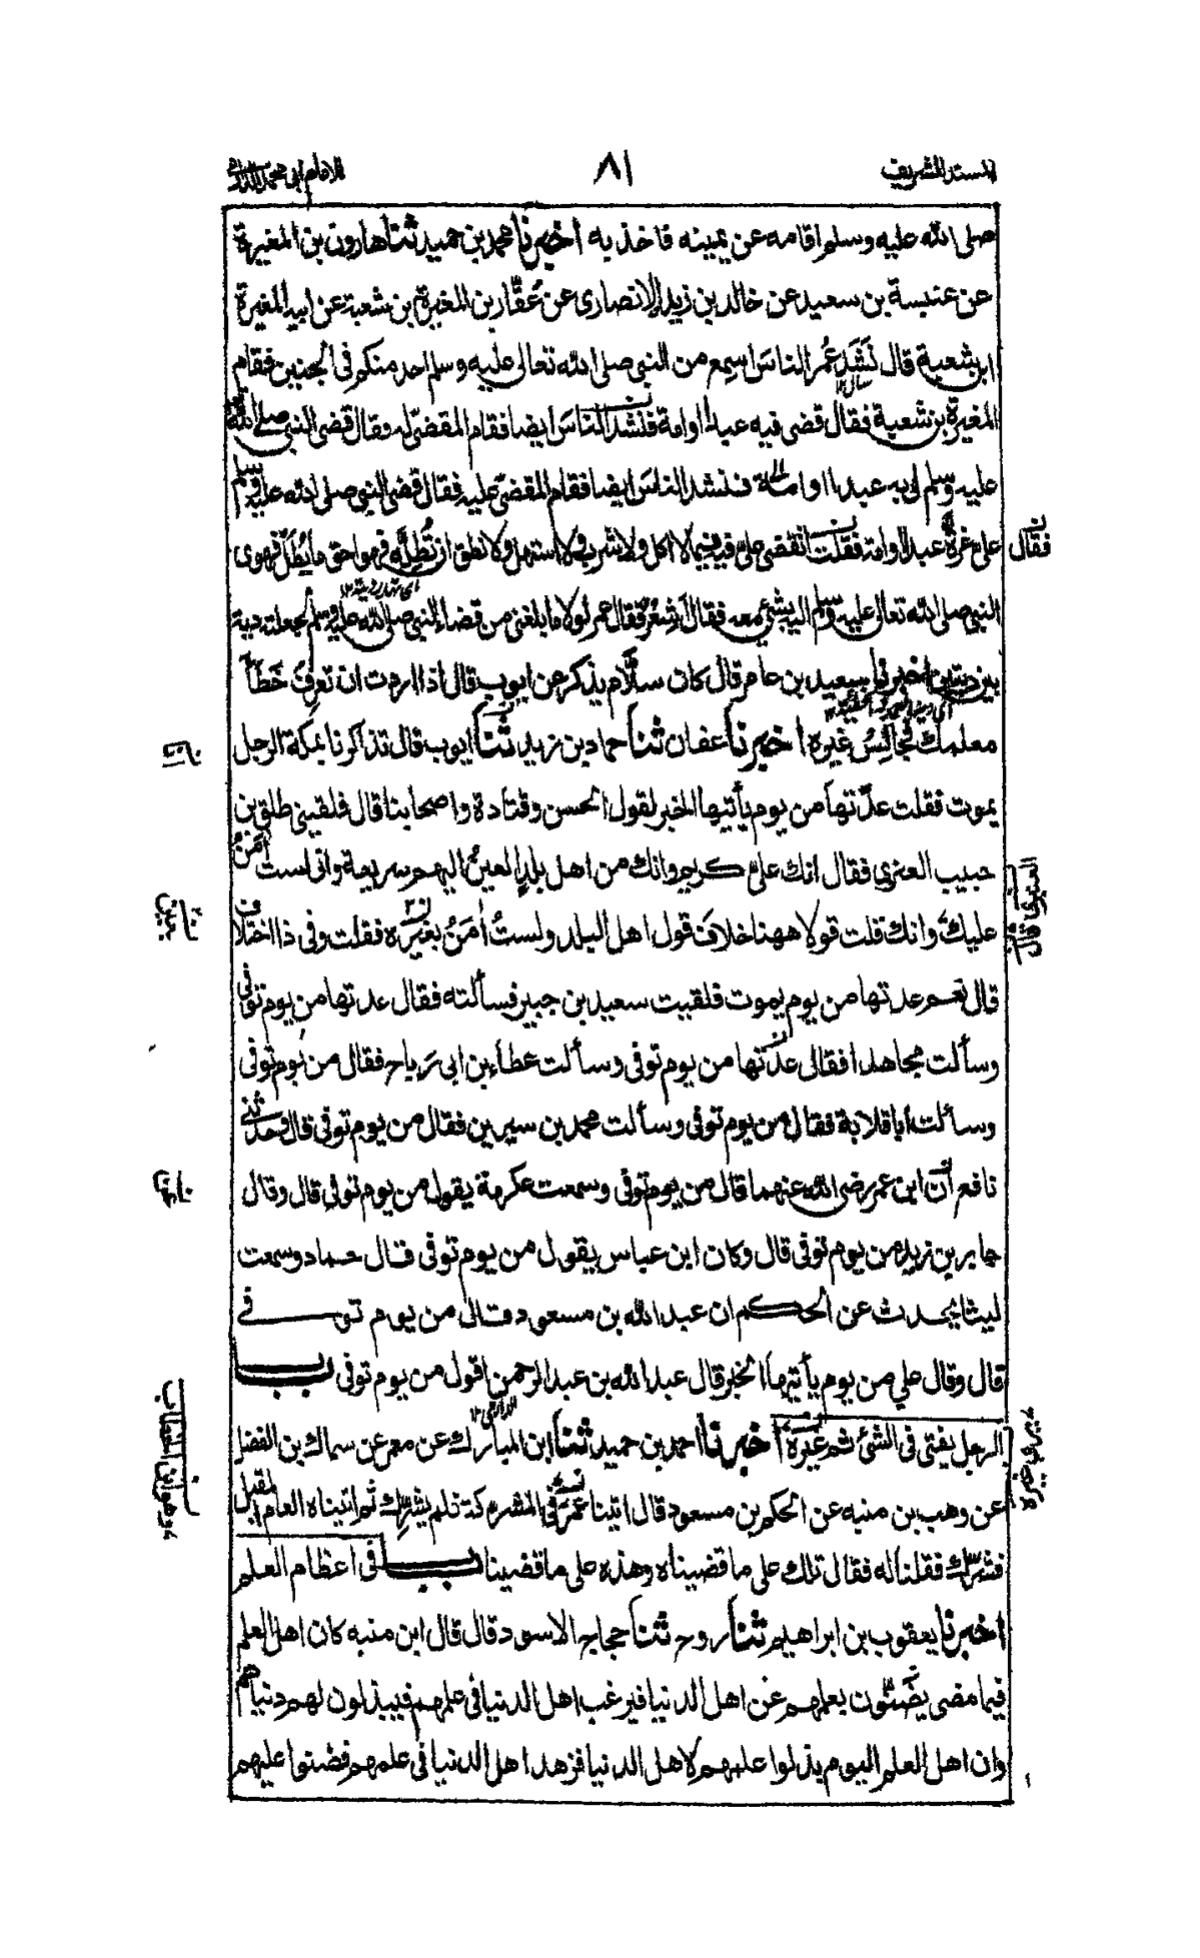 المسند الشريف
٨١
للامام ابى محمد الدارمى
صلى الله عليه وسلم اقامه عن يمينه فاخذ به اخبرنا محمد بن حميد ثنا هارون بن المغيرة
عن عنبسة بن سعيد عن خالد بن زيد الانصارى عن عقار بن المغيرة بن شعبة عن ابيه المغيرة
ابن شعبة قال نشد عمر الناس اسمع من النبى صلى الله تعالى عليه وسلم احد منكم فى الجنين فقام
المغيرة بن شعبة فقال قضى فيه عبدا او امة فنشد الناس ايضا فقام المقضى له فقال قضى النبى صلى الله
عليه وسلم لى به عبدا او امة فنشد الناس ايضا فقام المقضى عليه فقال قضى النبى صلى الله عليه وسلم
على غرة عبدا او امة فقلت اتقضى على فيه فيما لا اكل ولا شرب ولا استهل ولا نطق ان تطله فهو احق ما يطل فهوى
فقال
النبى صلى الله تعالى عليه وسلم اليه بشئ معه فقال أشعر فقال عمر لولا ما بلغنى من قضاء النبى صلى الله عليه وسلم لجعلته دية
بين ديتين اخبرنا سعيد بن عامر قال كان سلام يذكر عن ايوب قال اذا اردت ان تعرف خطأ
معلمك فجالس غيره اخبرنا عفان ثنا حماد بن زيد ثنا ايوب قال تذاكرنا بمكة الرجل
يموت فقلت عدتها من يوم يأتيها الخبر لقول الحسن وقتادة واصحابنا قال فلقينى طلق بن
حبيب العنزى فقال انك على كريم وانك من اهل بلد العين اليهم سريعة وانى لست امن
عليك وانك قلت قولا ههنا خلاف قول اهل البلد ولست أمن بغيره فقلت وفى ذا اختلاف
قال نعم عدتها من يوم يموت فلقيت سعيد بن جبير فسألته فقال عدتها من يوم توفى
وسألت مجاهدا فقال عدتها من يوم توفى وسألت عطاء بن ابى رباح فقال من يوم توفى
وسألت ابا قلابة فقال من يوم توفى وسألت محمد بن سيرين فقال من يوم توفى قال وحدثنى
نافع ان ابن عمر رضى الله عنهما قال من يوم توفى وسمعت عكرمة يقول من يوم توفى قال وقال
جابر بن زيد من يوم توفى قال وكان ابن عباس يقول من يوم توفى قال حماد وسمعت
ليثا يحدث عن الحكم ان عبد الله بن مسعود قال من يوم توفى
قال وقال على من يوم يأتيها الخبر قال عبد الله بن عبد الرحمن اقول من يوم توفى باب
الرجل يفتى فى الشئ ثم غيره اخبرنا احمد بن حميد ثنا ابن المبارك عن معمر عن سماك بن الفضل
عن وهب بن منبه عن الحكم بن مسعود قال اتينا عمر فى المشركة فلم يشرك ثم اتيناه العام المقبل
فشرك فقلنا له فقال تلك على ما قضيناه وهذه على ما قضينا باب فى اعظام العلم
اخبرنا يعقوب بن ابراهيم ثنا روح ثنا حجاج الاسود قال قال ابن منبه كان اهل العلم
فيما مضى يضنون بعلمهم عن اهل الدنيا فيرغب اهل الدنيا فى علمهم فيبذلون لهم دنياهم
وان اهل العلم اليوم بذلوا علمهم لاهل الدنيا فزهد اهل الدنيا فى علمهم فضنوا عليهم